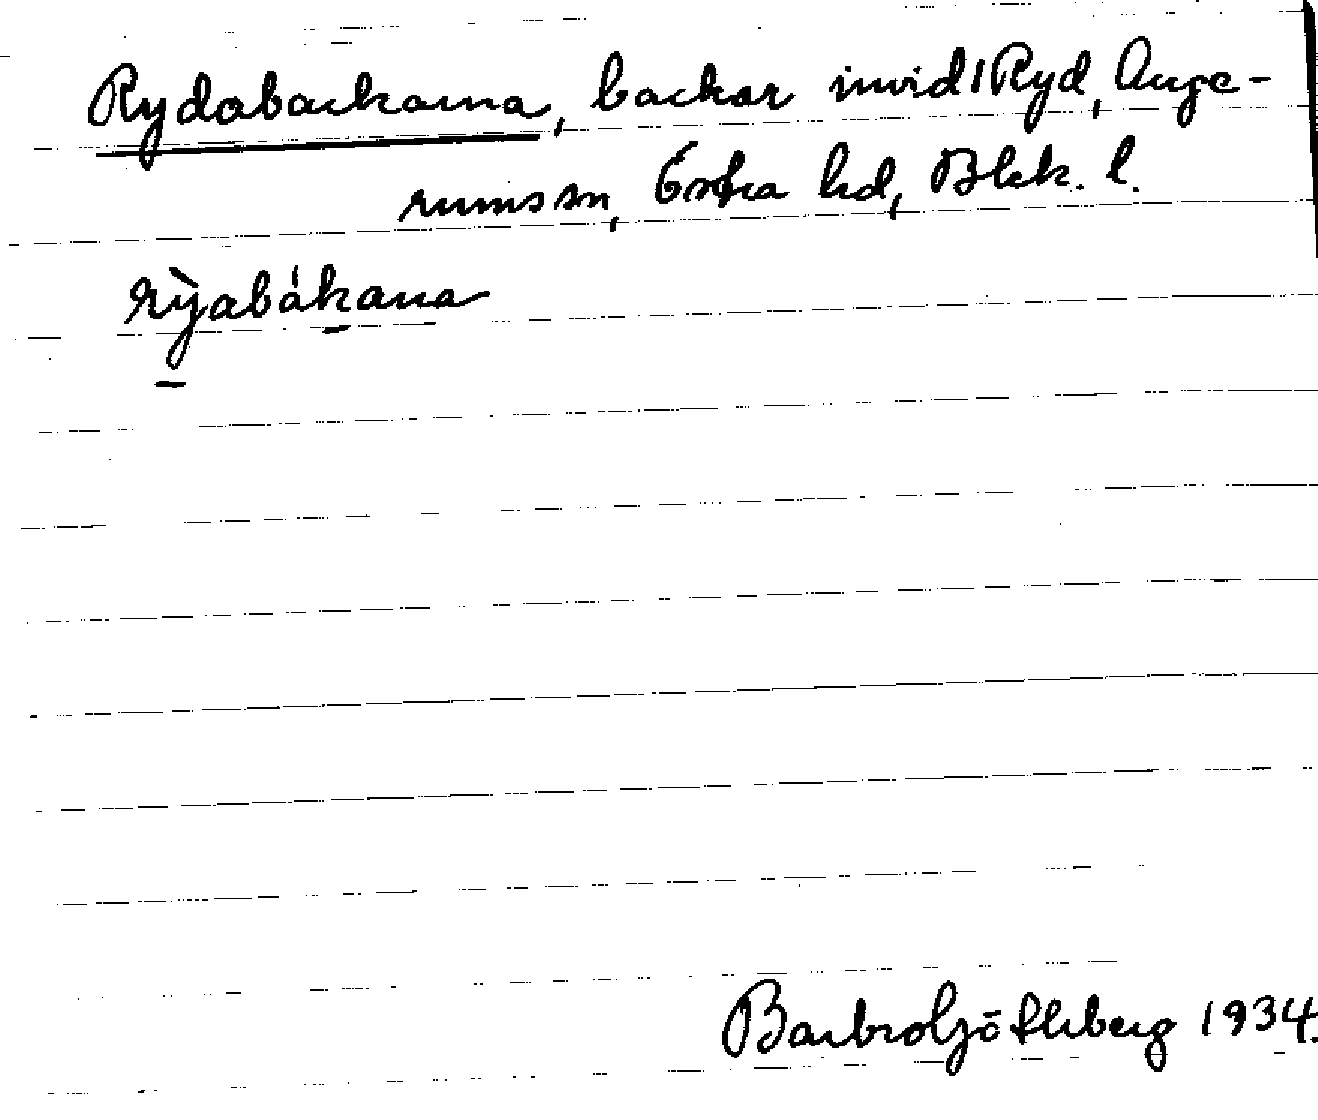 Rydabackarna, backar invid 1 Ryd, Auge-
rums sn, Östra hd, Blek. l.
rỳabákana
Barbro Götherberg 1934.